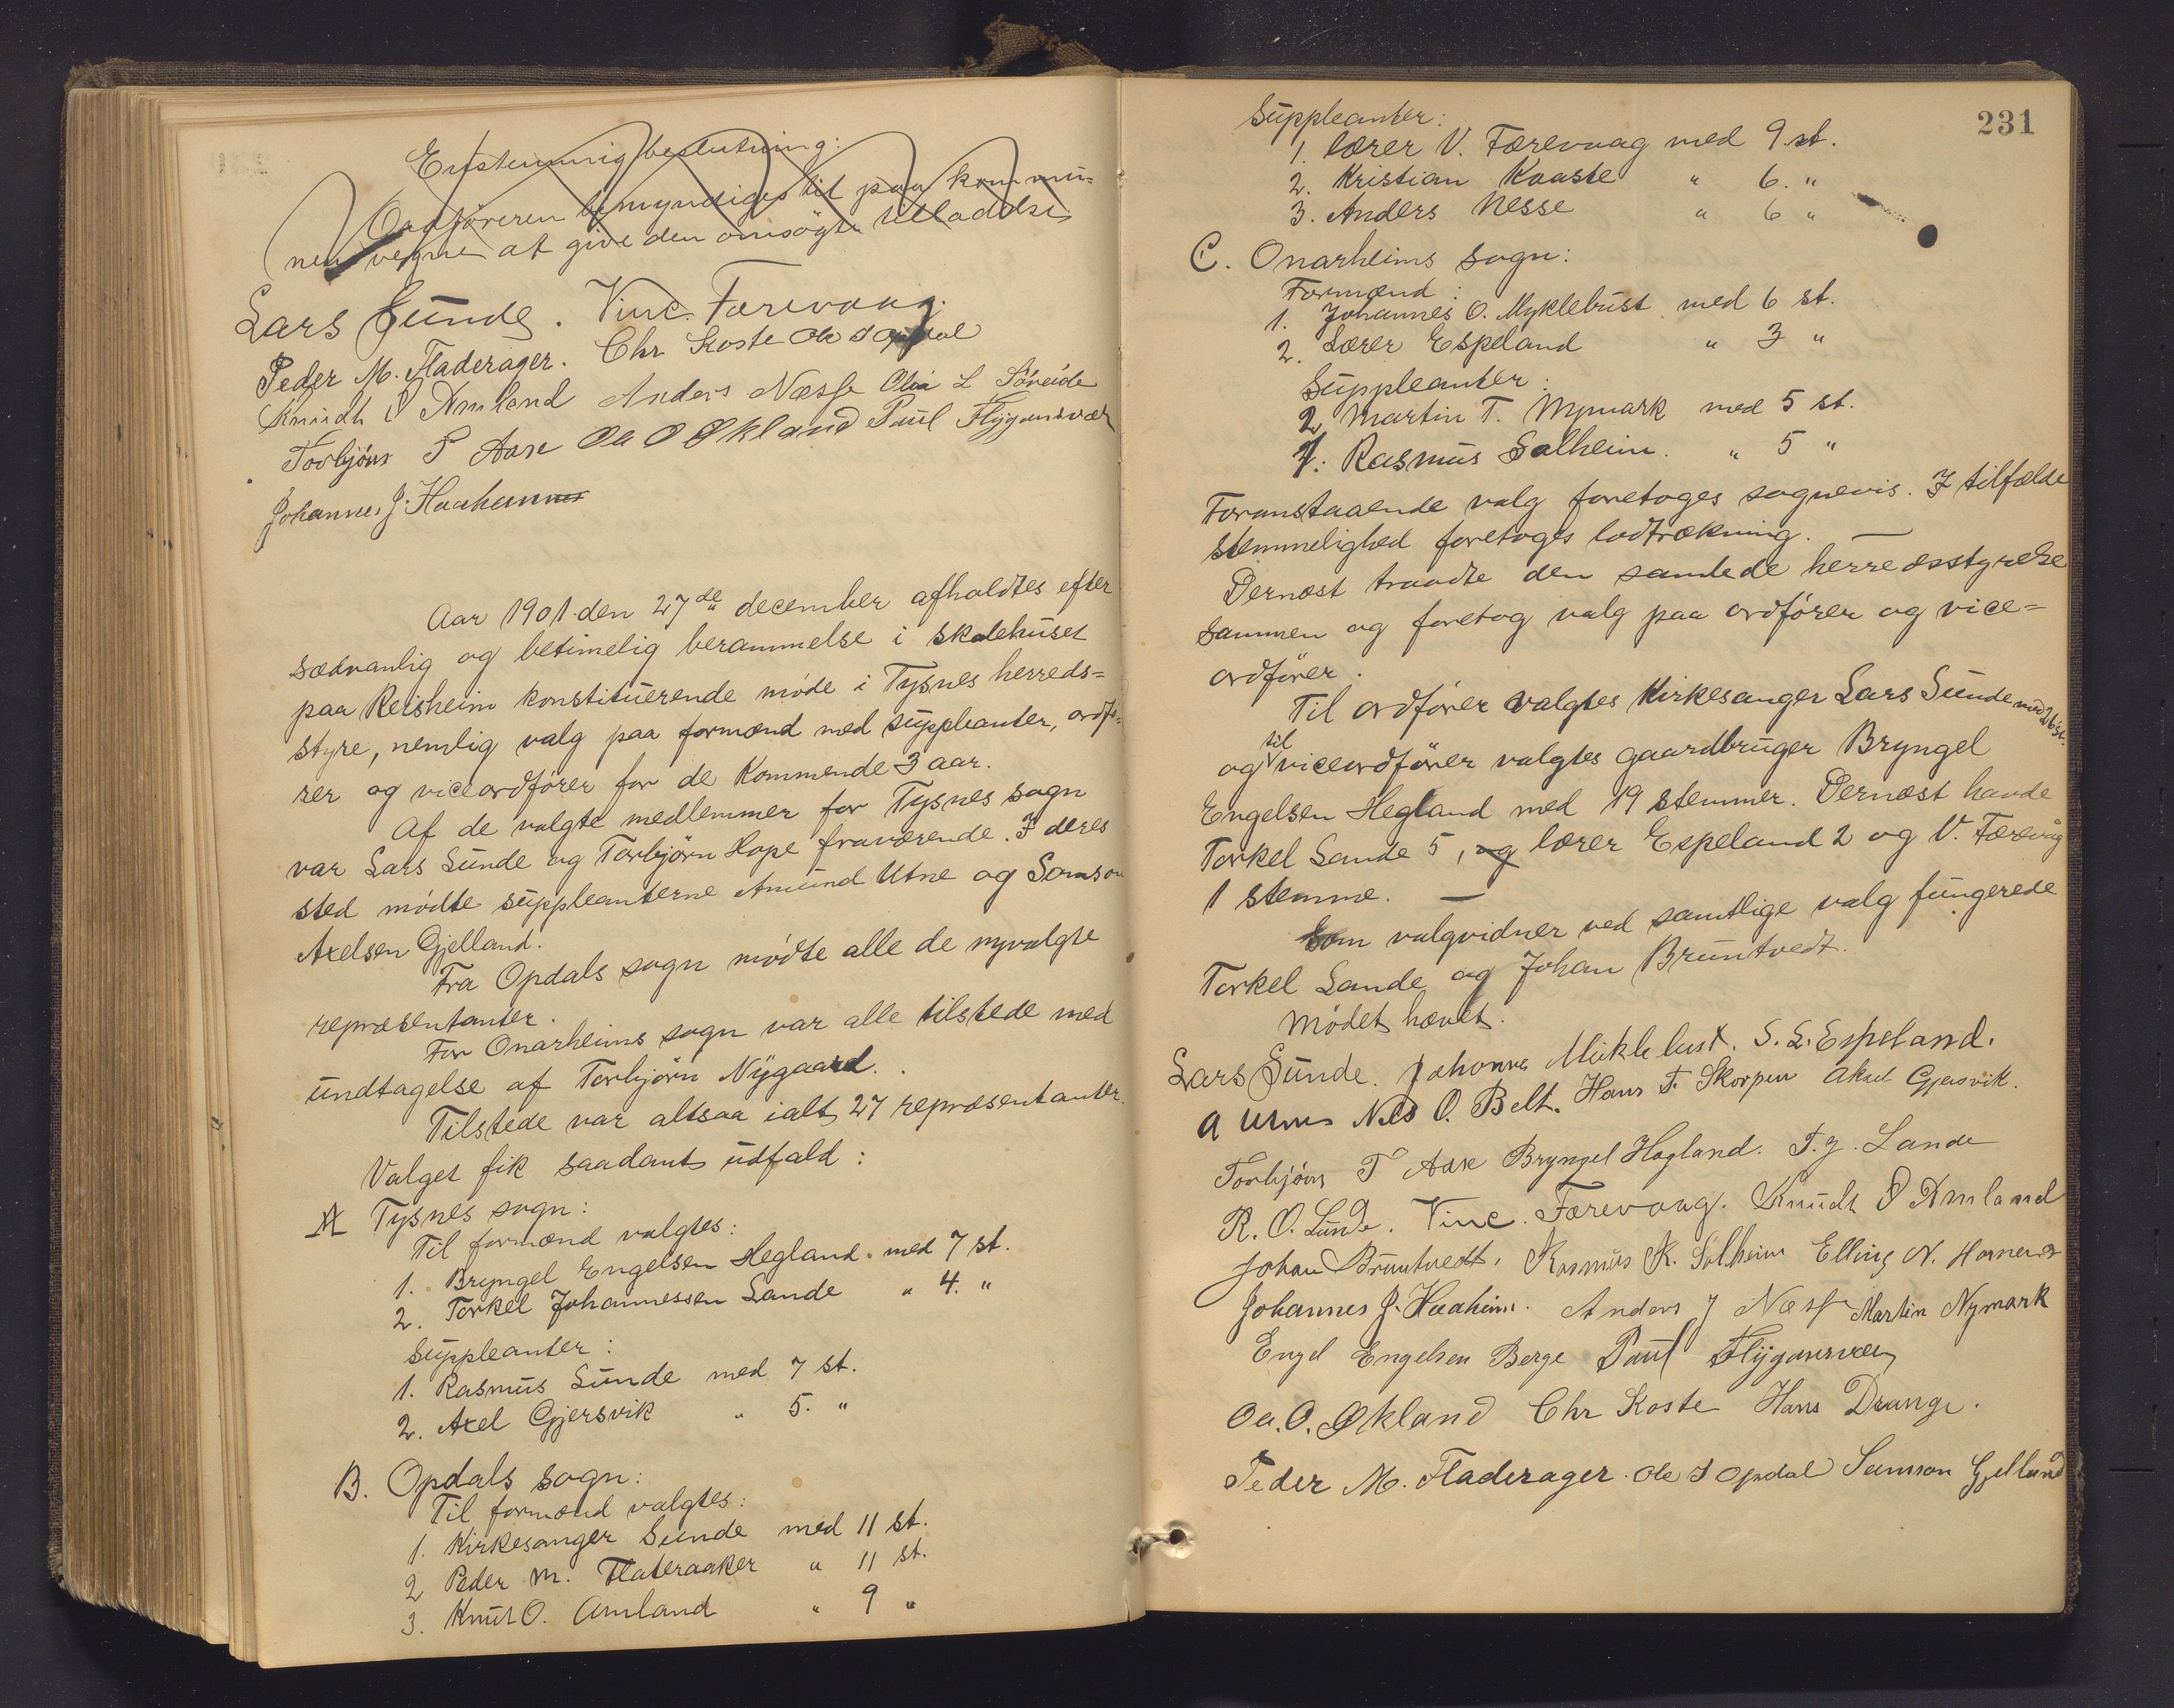 Enstemmig beslutning:
Ordføreren bemyndiges til paa kommu-
nens vegne at give den omsøgte tilladelse
Lars Sunde. Vinc. Færevaag.
Peder M. Fladerager. Chr Koste Ole J Opdal
Knudt O Amland Anders Næsse Olai L Söreide
Torbjörn T Aase Oa O Økland Paul Flygansvær
Johannes J. Haaheim
Aar 1901 den 27de december afholdtes efter
sædvanlig og betimelig berammelse i skolehuset
paa Reisheim konstituerende møde i Tysnes herreds-
styre, nemlig valg paa formænd med suppleanter, ordfø-
rer og viceordfører for de kommende 3 aar.
Af de valgte medlemmer for Tysnes sogn
var Lars Sunde og Torbjørn Hope fraværende. I deres
sted mødte suppleanterne Amund Utne og Samson
Axelsen Gjelland.
Fra Opdals sogn mødte alle de nyvalgte
repræsentanter.
For Onarheims sogn var alle tilstede med
undtagelse af Torbjørn Nygaard.
Tilstede var altsaa ialt 27 repræsentanter.
Valget fik saadant udfald:
A Tysnes sogn:
Til formænd valgtes:
1. Bryngel Engelsen Hegland med 7 st.
2. Torkel Johannessen Lande " 4. "
Suppleanter:
1. Rasmus Sunde med 7 st.
2. Axel Gjersvik " 5. "
B. Opdals sogn:
Til formænd valgtes:
1. Kirkesanger Sunde med 11 st.
2 Peder M. Flateraaker " 11 st.
3. Knut O. Amland " 9 "
231
Suppleanter:
1. Lærer V. Færevaag med 9 st.
2. Kristian Kaaste " 6. "
3. Anders Nesse " 6 "
C. Onarheims sogn:
Formænd:
1. Johannes O. Myklebust med 6 st.
2. Lærer Espeland " 3 "
Suppleanter:
2 Martin T. Nymark med 5 st.
1. Rasmus Solheim. " 5 "
Foranstaaende valg foretoges sognevis. I tilfælde
stemmelighed foretoges lodtrækning. —
Dernæst traadte den samlede herredsstyrelse
sammen og foretog valg paa ordfører og vice-
ordfører.
Til ordfører valgtes Kirkesanger Lars Sunde med 26 st.
og til viceordfører valgtes gaardbruger Bryngel
Engelsen Hegland med 19 stemmer. Dernæst havde
Torkel Lande 5, og lærer Espeland 2 og V. Færevåg
1 stemme. —
Som valgvidner ved samtlige valg fungerede
Torkel Lande og Johan Bruntvedt.
Mødet hævet.
Lars Sunde. Johannes Miklebust. S. L. Espeland.
A Utne Nils O. Belt. Hans T. Skorpen Aksel Gjersvik.
Torbjörn T Aase Bryngel Hegland. T. J. Lande
R. O. Sunde. Vinc. Færevaag. Knudt O Amland
Johan Bruntvedt, Rasmus K. Solheim Elling N. Hornenes
Johannes J. Haaheim. Anders J Næsse Martin Nymark
Engel Engelsen Berge Paul Flygansvær
Oa. O. Økland Chr Koste Hans Drange.
Peder M. Fladerager. Ole J Opdal Samson Gjelland